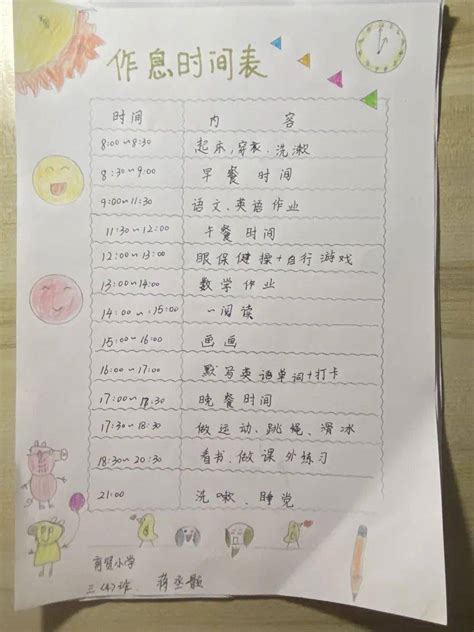 作息时间表
时间 内容
8:00~8:30 起床、穿衣、洗漱
8:30~9:00 早餐时间
9:00~11:30 语文、英语作业
11:30~12:00 午餐时间
12:00~13:00 眼保健操+自行游戏
13:00~14:00 数学作业
14:00~15:00 阅读
15:00~16:00 画画
16:00~17:00 默写英语单词+打卡
17:00~17:30 晚餐时间
17:30~18:30 做运动、跳绳、滑冰
18:30~20:30 看书、做课外练习
21:00 洗漱、睡觉
育贤小学
三(4)